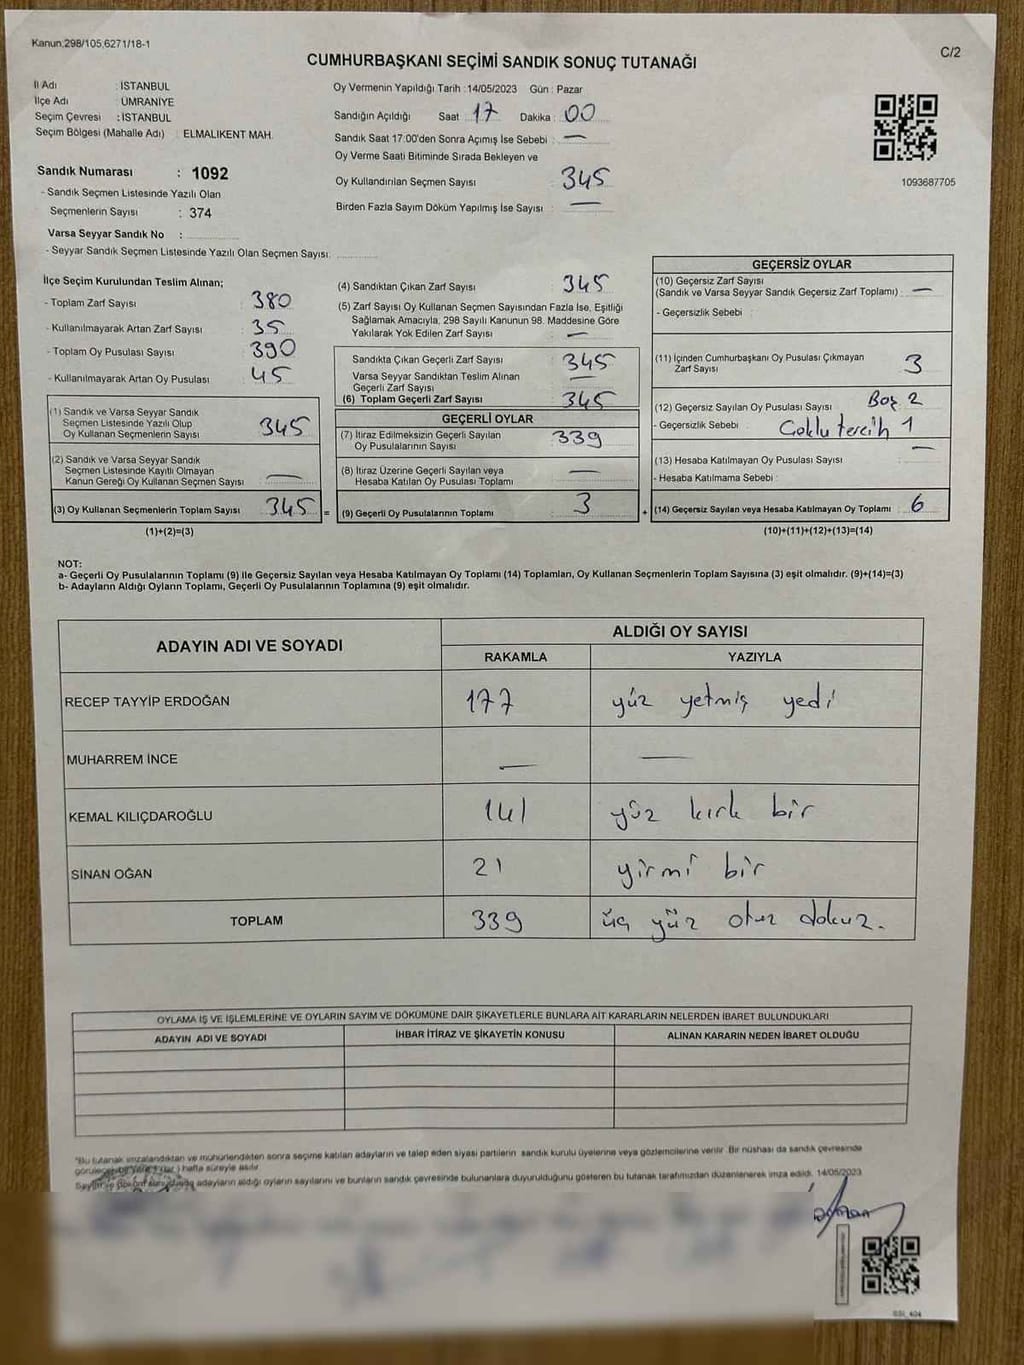 Kanun,298/105,6271/18-1
C/2
CUMHURBAŞKANI SEÇİMİ SANDIK SONUÇ TUTANAĞI
İl Adı : İSTANBUL
İlçe Adı : ÜMRANİYE
Seçim Çevresi : İSTANBUL
Seçim Bölgesi (Mahalle Adı) : ELMALIKENT MAH.
Sandık Numarası : 1092
- Sandık Seçmen Listesinde Yazılı Olan
Seçmenlerin Sayısı : 374
Varsa Seyyar Sandık No :
- Seyyar Sandık Seçmen Listesinde Yazılı Olan Seçmen Sayısı:
Oy Vermenin Yapıldığı Tarih :14/05/2023 Gün : Pazar
Sandığın Açıldığı Saat : 17 Dakika : 00
Sandık Saat 17:00'den Sonra Açımış İse Sebebi : —
Oy Verme Saati Bitiminde Sırada Bekleyen ve
Oy Kullandırılan Seçmen Sayısı 345
Birden Fazla Sayım Döküm Yapılmış İse Sayısı : —
1093687705
İlçe Seçim Kurulundan Teslim Alınan;
- Toplam Zarf Sayısı : 380
- Kullanılmayarak Artan Zarf Sayısı : 35
- Toplam Oy Pusulası Sayısı : 390
- Kullanılmayarak Artan Oy Pusulası : 45
(1) Sandık ve Varsa Seyyar Sandık
Seçmen Listesinde Yazılı Olup
Oy Kullanan Seçmenlerin Sayısı : 345
(2) Sandık ve Varsa Seyyar Sandık
Seçmen Listesinde Kayıtlı Olmayan
Kanun Gereği Oy Kullanan Seçmen Sayısı : —
(3) Oy Kullanan Seçmenlerin Toplam Sayısı : 345 =
(1)+(2)=(3)
(4) Sandıktan Çıkan Zarf Sayısı : 345
(5) Zarf Sayısı Oy Kullanan Seçmen Sayısından Fazla İse, Eşitliği
Sağlamak Amacıyla, 298 Sayılı Kanunun 98. Maddesine Göre
Yakılarak Yok Edilen Zarf Sayısı : —
Sandıkta Çıkan Geçerli Zarf Sayısı : 345
Varsa Seyyar Sandıktan Teslim Alınan
Geçerli Zarf Sayısı : —
(6) Toplam Geçerli Zarf Sayısı : 345
GEÇERLİ OYLAR
(7) İtiraz Edilmeksizin Geçerli Sayılan
Oy Pusulalarının Sayısı : 339
(8) İtiraz Üzerine Geçerli Sayılan veya
Hesaba Katılan Oy Pusulası Toplamı : —
(9) Geçerli Oy Pusulalarının Toplamı : 3 +
GEÇERSİZ OYLAR
(10) Geçersiz Zarf Sayısı
(Sandık ve Varsa Seyyar Sandık Geçersiz Zarf Toplamı) : —
- Geçersizlik Sebebi :
(11) İçinden Cumhurbaşkanı Oy Pusulası Çıkmayan
Zarf Sayısı : 3
(12) Geçersiz Sayılan Oy Pusulası Sayısı : Boş 2
- Geçersizlik Sebebi : Çoklu tercih 1
(13) Hesaba Katılmayan Oy Pusulası Sayısı : —
- Hesaba Katılmama Sebebi :
(14) Geçersiz Sayılan veya Hesaba Katılmayan Oy Toplamı : 6
(10)+(11)+(12)+(13)=(14)
NOT:
a- Geçerli Oy Pusulalarının Toplamı (9) ile Geçersiz Sayılan veya Hesaba Katılmayan Oy Toplamı (14) Toplamları, Oy Kullanan Seçmenlerin Toplam Sayısına (3) eşit olmalıdır. (9)+(14)=(3)
b- Adayların Aldığı Oyların Toplamı, Geçerli Oy Pusulalarının Toplamına (9) eşit olmalıdır.
ADAYIN ADI VE SOYADI
ALDIĞI OY SAYISI
RAKAMLA YAZIYLA
RECEP TAYYİP ERDOĞAN 177 yüz yetmiş yedi
MUHARREM İNCE — —
KEMAL KILIÇDAROĞLU 141 yüz kırk bir
SİNAN OĞAN 21 yirmi bir
TOPLAM 339 üç yüz otuz dokuz.
OYLAMA İŞ VE İŞLEMLERİNE VE OYLARIN SAYIM VE DÖKÜMÜNE DAİR ŞİKAYETLERLE BUNLARA AİT KARARLARIN NELERDEN İBARET BULUNDUKLARI
ADAYIN ADI VE SOYADI İHBAR İTİRAZ VE ŞİKAYETİN KONUSU ALINAN KARARIN NEDEN İBARET OLDUĞU
*Bu tutanak imzalandıktan ve mühürlendikten sonra seçime katılan adayların ve talep eden siyasi partilerin sandık kurulu üyelerine veya gözlemcilerine verilir. Bir nüshası da sandık çevresinde
hafta süreyle asılır.
adayların aldığı oyların sayılarını ve bunların sandık çevresinde bulunanlara duyurulduğunu gösteren bu tutanak tarafımızdan düzenlenerek imza edildi. 14/05/2023